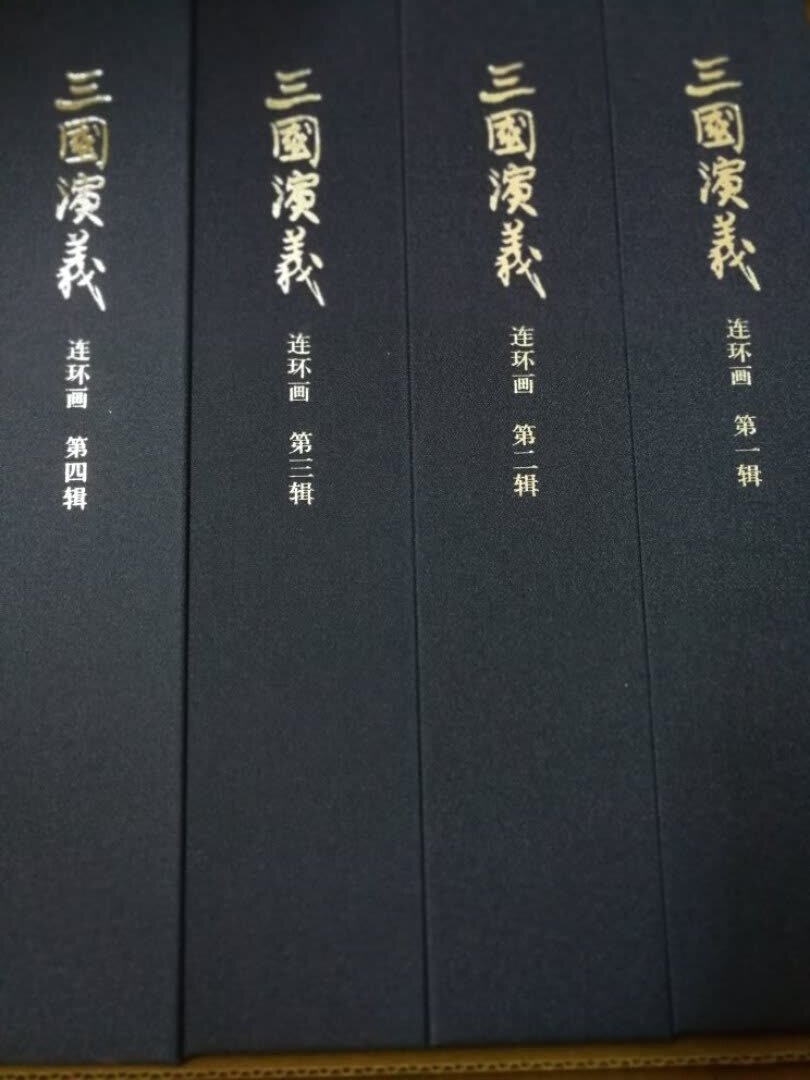 三國演義 连环画 第一辑
三國演義 连环画 第二辑
三國演義 连环画 第三辑
三國演義 连环画 第四辑